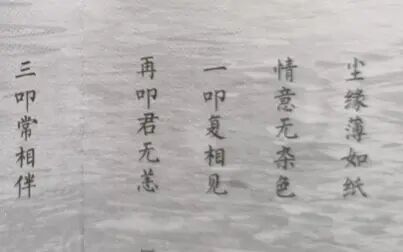 尘缘薄如纸
情意无杂色
一叩复相见
再叩君无恙
三叩常相伴